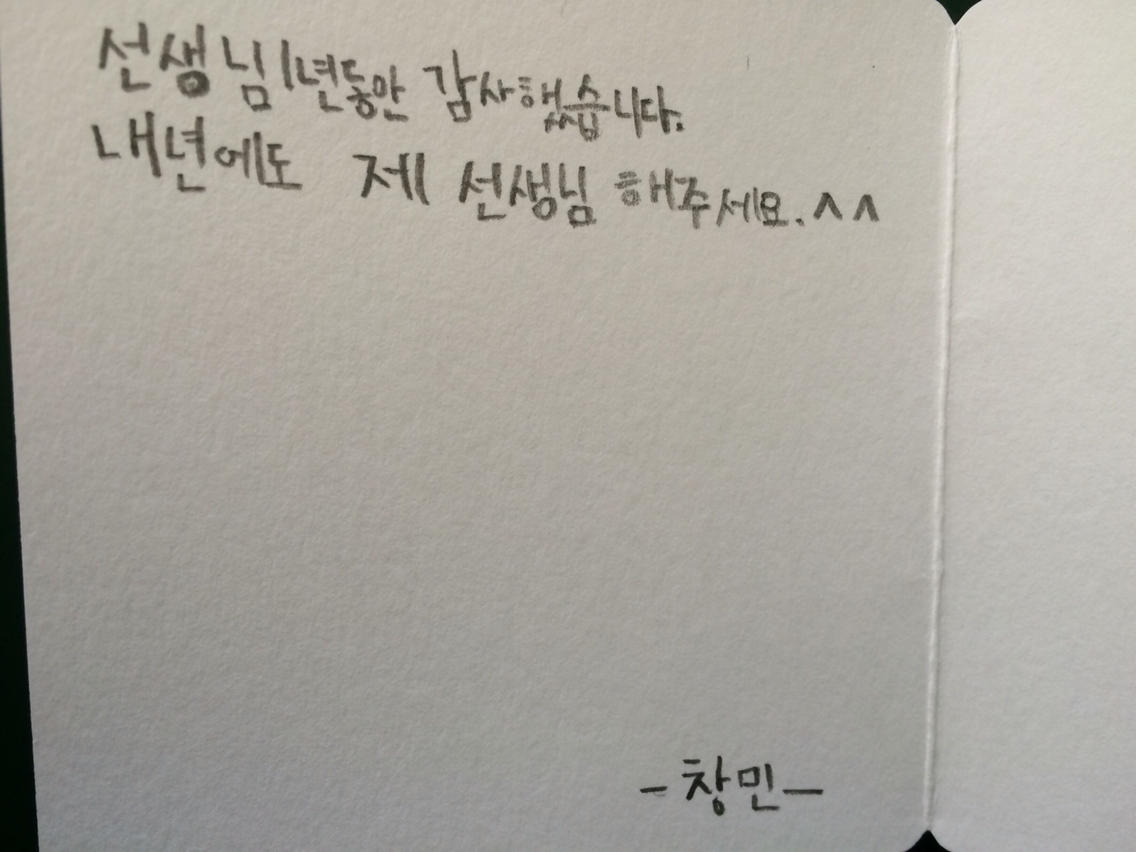 선생님 1년동안 감사했습니다.
내년에도 제 선생님 해주세요. ^^
-창민-